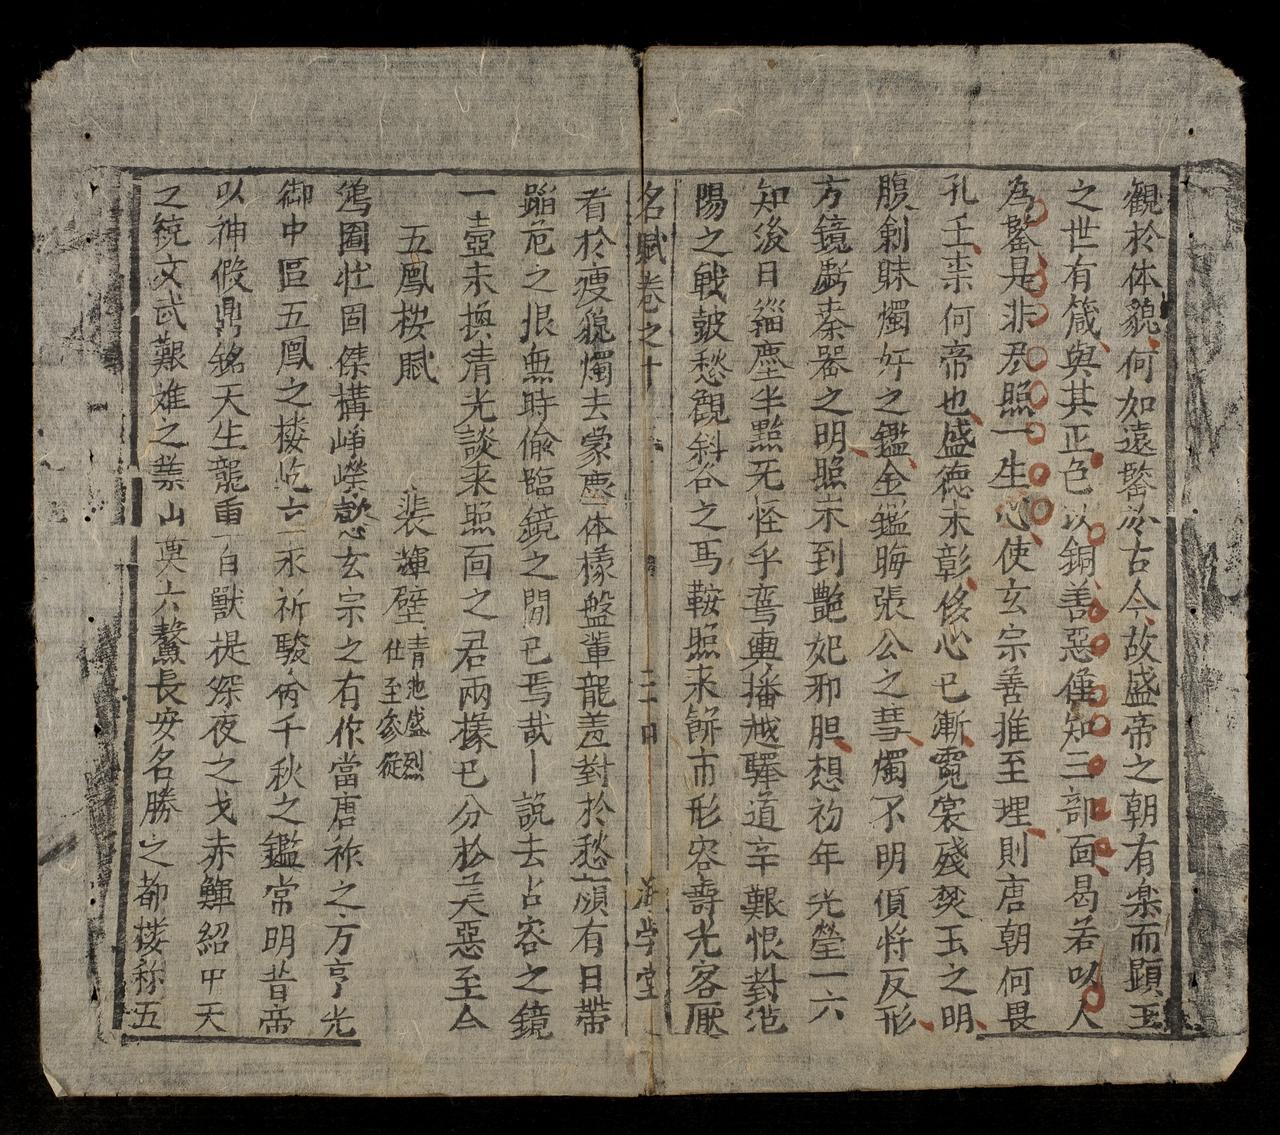 觀於体貌何如遠鑒於古今故盛帝之朝有楽而顕玉
之世有箴與其正色以銅善惡僅知三部面曷若以人
為鑒是非尽照一生心使玄宗善推至理則唐朝何畏
孔壬柰何帝也盛德未彰侈心已漸霓裳殘焚玉之明
腹剣昧燭奸之鑑金鑑晦張公之彗燭不明傎将反形
方鏡虧秦器之明照未到艶妃邪胆想初年光瑩一六
知後日緇塵半點无怪乎鸞輿播越驛道辛艱恨對
陽之戦皷愁觀斜谷之馬鞍照来餅市形容壽光客厭
名賦卷之十
看於瘦貌燭去蒙塵体樣盤輩龍羞對於愁顔有日帶
蹈危之恨無時偷臨鏡之間已焉哉說去占容之鏡
一壺未換清光談来照面之君兩樣已分於美惡至今
五鳳楼賦 裴輝壁青池盛烈仕至参從
鴻圖壮固傑構崢嶸歆玄宗之有作當唐祚之方亨光
御中區五鳳之楼屹立永祈駿命千秋之鑑常明昔帝
以神假鼎銘天生龍重百獸提深夜之戈赤鯶紹中天
之統文武艱雄之業山奠六鰲長安名勝之都楼称五